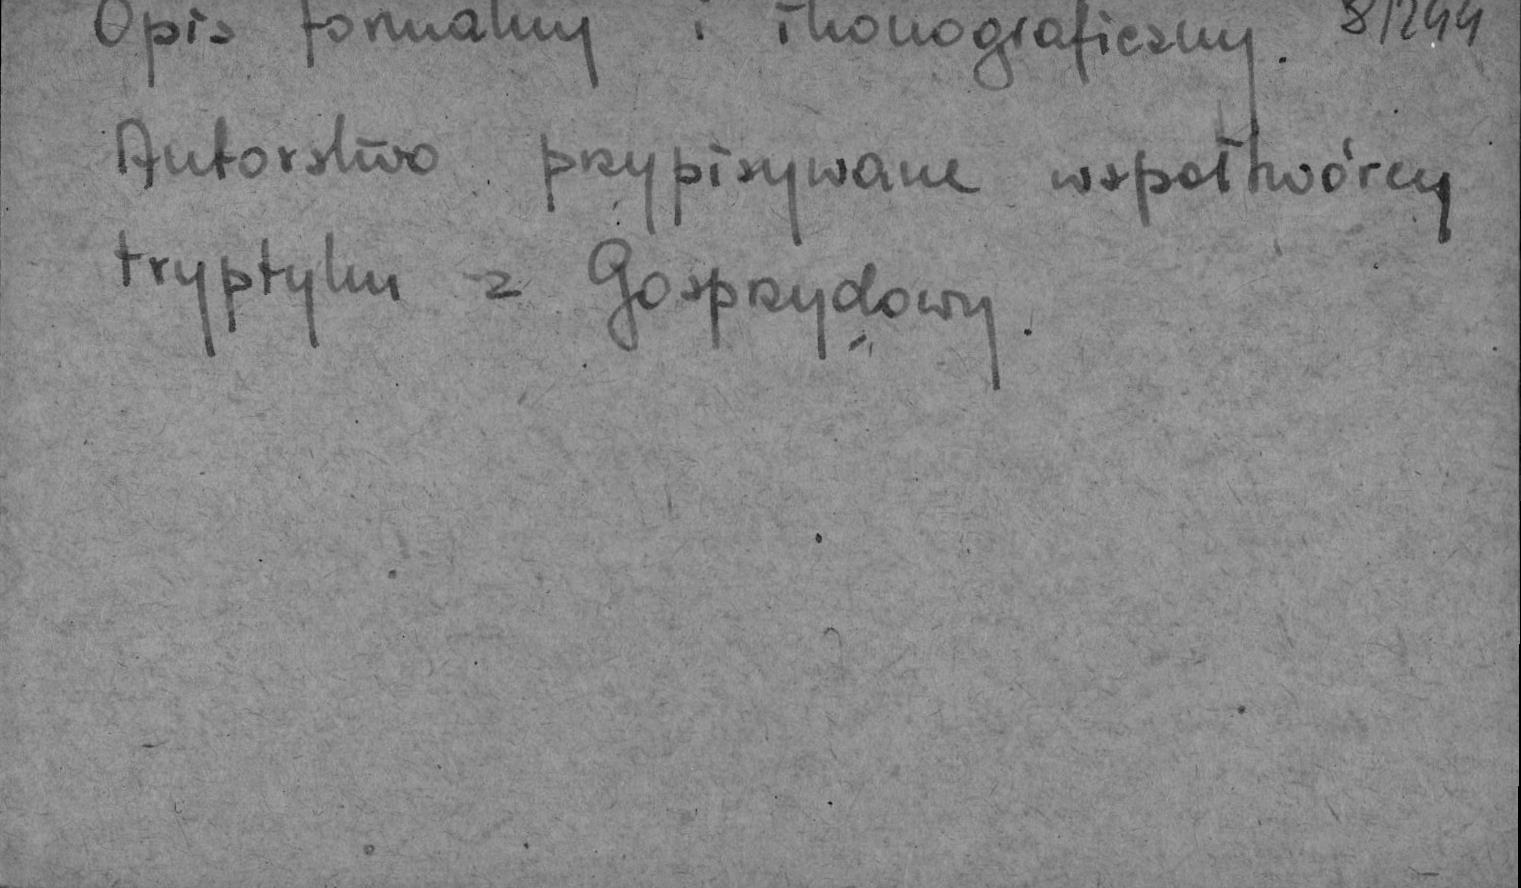 Opis formalny i ikonograficzny. 8/244
Autorstwo przypisywane wspołtwórcy
tryptyku z Gosprzydowy.